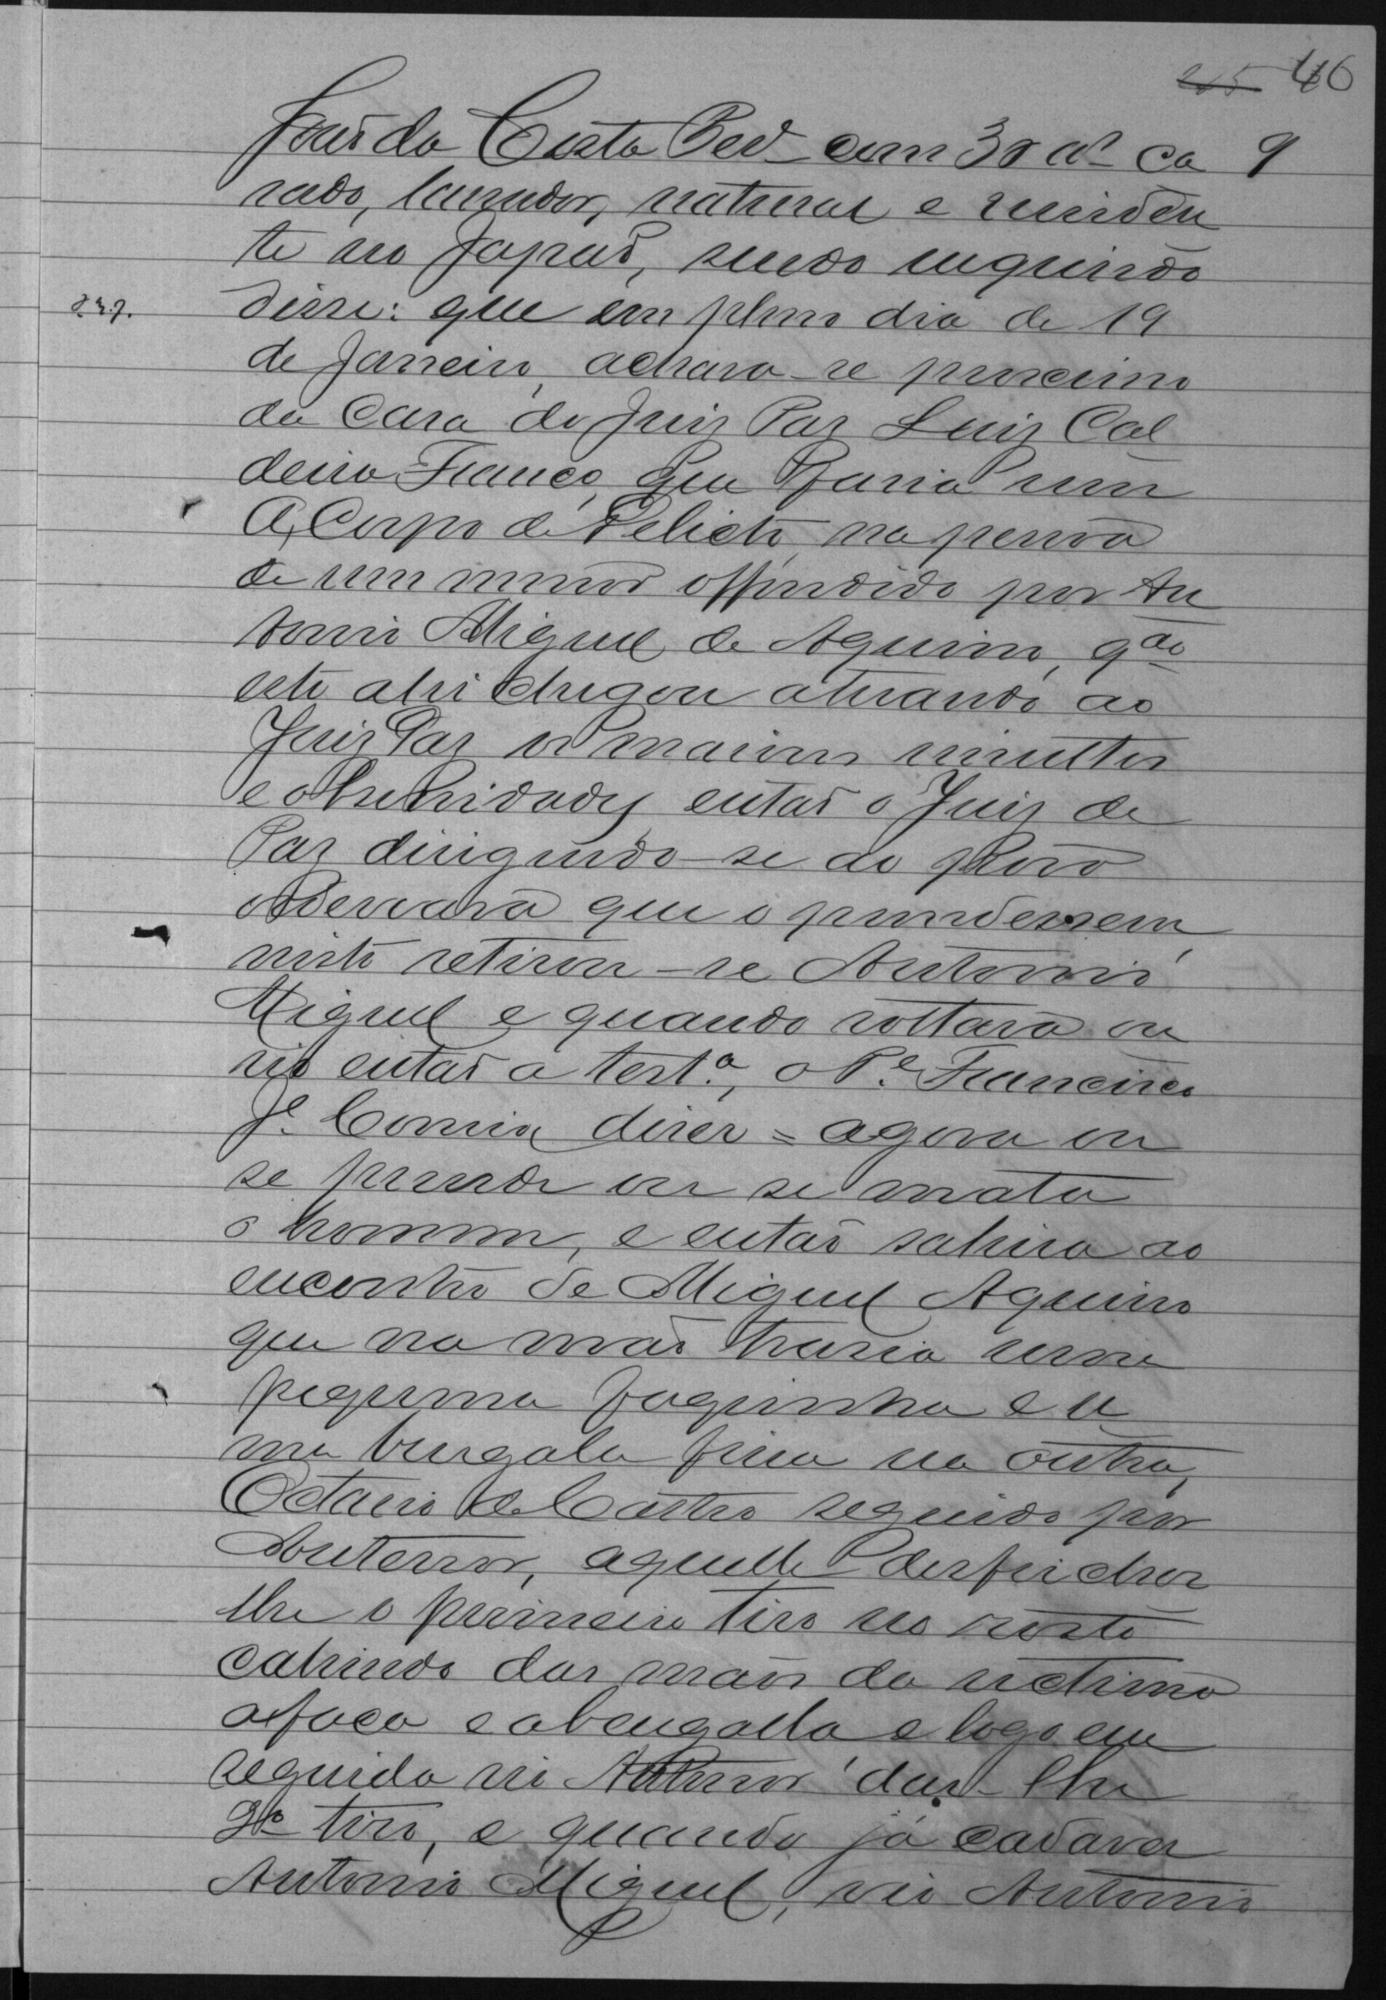 46
9
João da Costa Ped.º com 30 aˢ ca
sado, lavrador, natural e residen
te no Japão, sendo inquirido
disse: que em pleno dia de 19
de Janeiro, achava-se proximo
da casa do Juiz Paz Luiz Cal
deira Franco, que fazia um
A, Corpo de Delicto, na pessoa
de um menor offendido por An
tonio Miguel de Aquino, qᵈᵒ
este ahi chegou atirando ao
Juiz Paz os maiores insultos
e obscenidades então o Juiz de
Paz dirigindo-se ao povo
ordenara que o prendessem,
nisto retirou-se Antonio
Miguel e quando voltava ou
vio então a testª, o Pᵉ Francisco
Jᵉ Correia dizer = agora ou
se prende ou se mata
o homem, e então sahira ao
encontro de Miguel Aquino
que na mão trazia uma
pequena faquinha e u
ma bengala fina na outra,
Octavio de Castro seguido por
Antenor, aquelle desfeichou
lhe o primeiro tiro no rosto
cahindo das mãos da victima
a faca e a bengalla e logo em
seguida vi Antenor dar-lhe
2º tiro, e quando já cadaver
Antonio Miguel, vio Antonio